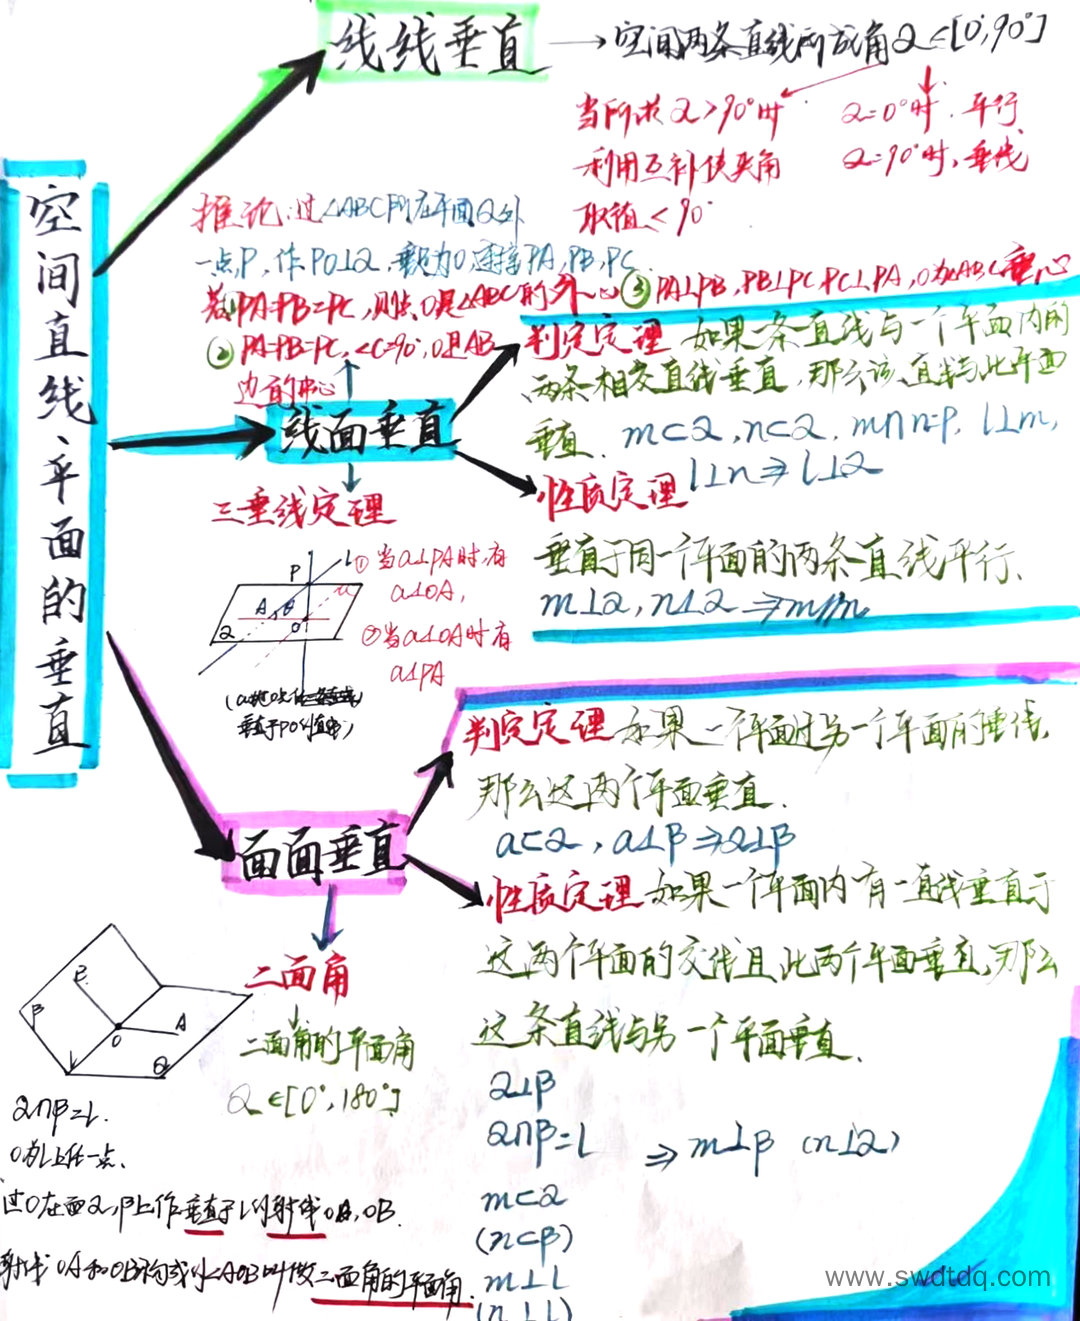 空间直线平面的垂直
线线垂直
空间两条直线所成角α∈[0°,90°]
当所求α>90°时
利用互补使夹角
取值<90°
α=0°时.平行
α=90°时,垂线
推论:过△ABC所在平面α外
一点P,作PO⊥α,垂足为O,连接PA,PB,PC.
若①PA=PB=PC,则点O是△ABC的外心 ③PA⊥PB,PB⊥PC,PC⊥PA,O为△ABC垂心
②PA=PB=PC,∠C=90°,O是AB
边的中心
线面垂直
判定定理 如果一条直线与一个平面内的
两条相交直线垂直,那么该直线与此平面
垂直. m⊂α,n⊂α,m∩n=P,l⊥m,
l⊥n⇒l⊥α
性质定理
垂直于同一个平面的两条直线平行.
m⊥α,n⊥α⇒m//n
三垂线定理
P
l
A
θ
O
a
α
①当a⊥PA时有
a⊥OA,
②当a⊥OA时有
a⊥PA
垂直于PO的直线)
面面垂直
判定定理 如果一个平面过另一个平面的垂线,
那么这两个平面垂直.
a⊂α,a⊥β⇒α⊥β
性质定理 如果一个平面内有一直线垂直于
这两个平面的交线且此两个平面垂直,那么
这条直线与另一个平面垂直.
α⊥β
α∩β=l
⇒m⊥β (n⊥α)
m⊂α
(n⊂β)
m⊥l
(n⊥l)
二面角
二面角的平面角
α∈[0°,180°]
B
β
O
A
α
α∩β=l.
O为l上任一点.
过O在面α,β上作垂直于l的射线OA,OB.
射线OA和OB构成的∠AOB叫做二面角的平面角.
www.swdtdq.com